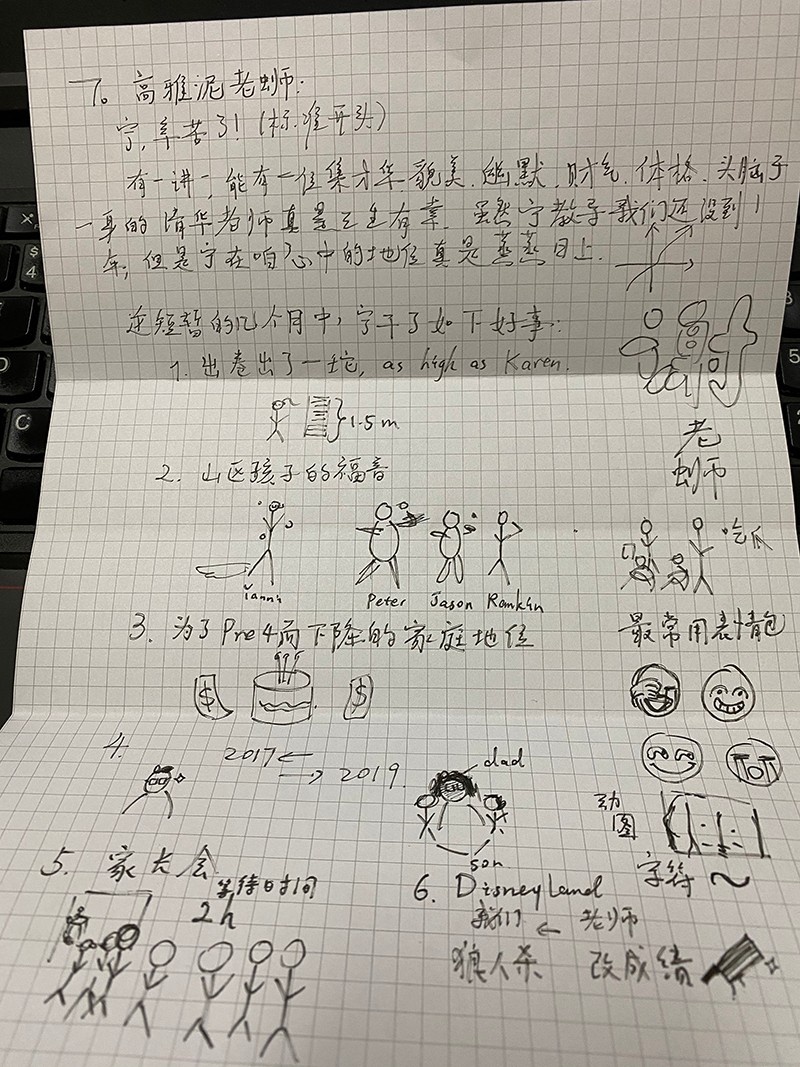 7. 高雅泥老蜥师:
宁,辛苦了!(标准开头)
有一讲一,能有一位集才华、貌美、幽默、财气、体格、头脑于
一身的清华老师真是三生有幸. 虽然宁教导我们还没到1
年,但是宁在咱心中的地位真是蒸蒸日上.
在短暂的几个月中,宁干了如下好事:
1. 出卷出了一坨, as high as Karen.
1.5m
老
师
2. 山区孩子的福音
吃瓜
Peter Jason
3. 为了Pre4而下降的家庭地位
最常用表情包
$ $
4.
2017 ← → 2019
dad
son
动图
字符 ~
5. 家长会
等待时间
2h
6. DisneyLand
我们 ← 老师
狼人杀 改成绩